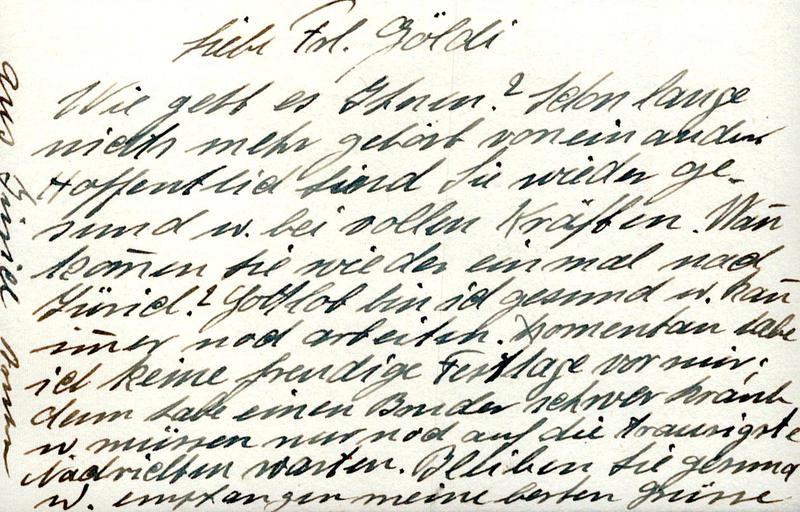 Liebe Frl. Göldi
Wie geht es Ihnen? Schon lange
nichts mehr gehört voneinander
Hoffentlich sind Sie wieder ge-
sund u. bei vollen Kräften. Wan̄
kom̄en Sie wieder einmal nach
Zürich? Gottlob bin ich gesund u. kan̄
im̄er noch arbeiten. Momentan habe
ich keine freudige Festtage vor mir;
denn habe einen Bruder schwer krank
u. müssen nur noch auf die traurigste
Nachrichten warten. Bleiben Sie gesund
u. empfangen meine besten Grüsse
aus Zürich